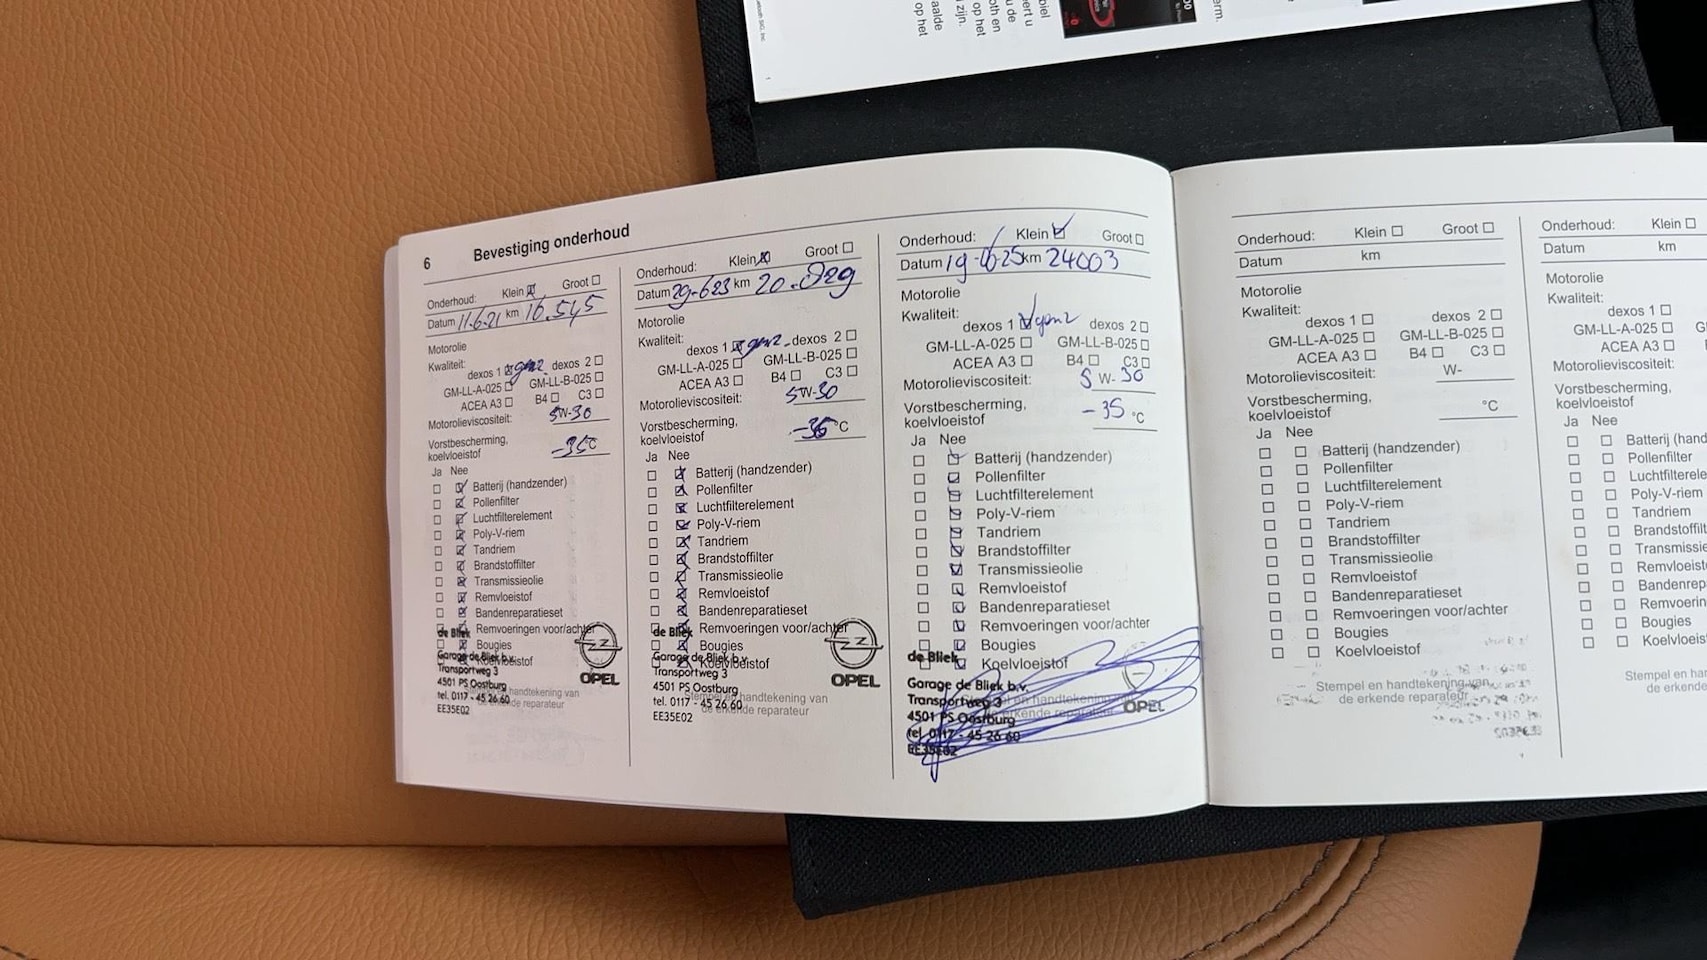 6 Bevestiging onderhoud
Onderhoud: Klein Groot
Datum 11.6.21 km 16.545
Motorolie
Kwaliteit:
dexos 1 gen2 dexos 2
GM-LL-A-025 GM-LL-B-025
ACEA A3 B4 C3
Motorolieviscositeit: 5W-30
Vorstbescherming,
koelvloeistof -35°C
Ja Nee
Batterij (handzender)
Pollenfilter
Luchtfilterelement
Poly-V-riem
Tandriem
Brandstoffilter
Transmissieolie
Remvloeistof
Bandenreparatieset
Remvoeringen voor/achter
Bougies
Koelvloeistof
de Bliek
Garage de Bliek b.v.
Transportweg 3
4501 PS Oostburg
tel. 0117 - 45 26 60
EE35E02
OPEL
Stempel en handtekening van
de erkende reparateur
Onderhoud: Klein Groot
Datum 29-6 23 km
Motorolie
Kwaliteit:
dexos 1 gen2 dexos 2
GM-LL-A-025 GM-LL-B-025
ACEA A3 B4 C3
Motorolieviscositeit: 5W-30
Vorstbescherming,
koelvloeistof °C
Ja Nee
Batterij (handzender)
Pollenfilter
Luchtfilterelement
Poly-V-riem
Tandriem
Brandstoffilter
Transmissieolie
Remvloeistof
Bandenreparatieset
Remvoeringen voor/achter
Bougies
Koelvloeistof
de Bliek
Garage de Bliek b.v.
Transportweg 3
4501 PS Oostburg
tel. 0117 - 45 26 60
EE35E02
OPEL
Stempel en handtekening van
de erkende reparateur
Onderhoud: Klein Groot
Datum 19-6-25 km 24003
Motorolie
Kwaliteit:
dexos 1 gen2 dexos 2
GM-LL-A-025 GM-LL-B-025
ACEA A3 B4 C3
Motorolieviscositeit: 5 W-30
Vorstbescherming,
koelvloeistof -35 °C
Ja Nee
Batterij (handzender)
Pollenfilter
Luchtfilterelement
Poly-V-riem
Tandriem
Brandstoffilter
Transmissieolie
Remvloeistof
Bandenreparatieset
Remvoeringen voor/achter
Bougies
Koelvloeistof
de Bliek
Garage de Bliek b.v.
Transportweg 3
4501 PS Oostburg
tel. 0117 - 45 26 60
EE35E02
OPEL
Stempel en handtekening van
de erkende reparateur
Onderhoud: Klein Groot
Datum km
Motorolie
Kwaliteit:
dexos 1 dexos 2
GM-LL-A-025 GM-LL-B-025
ACEA A3 B4 C3
Motorolieviscositeit: W-
Vorstbescherming,
koelvloeistof °C
Ja Nee
Batterij (handzender)
Pollenfilter
Luchtfilterelement
Poly-V-riem
Tandriem
Brandstoffilter
Transmissieolie
Remvloeistof
Bandenreparatieset
Remvoeringen voor/achter
Bougies
Koelvloeistof
Stempel en handtekening van
de erkende reparateur
Onderhoud: Klein
Datum km
Motorolie
Kwaliteit:
dexos 1
GM-LL-A-025
ACEA A3
Motorolieviscositeit:
Vorstbescherming,
koelvloeistof
Ja Nee
Batterij
Pollenfilter
Poly-V-riem
Tandriem
Bougies
Stempel en
de erkende